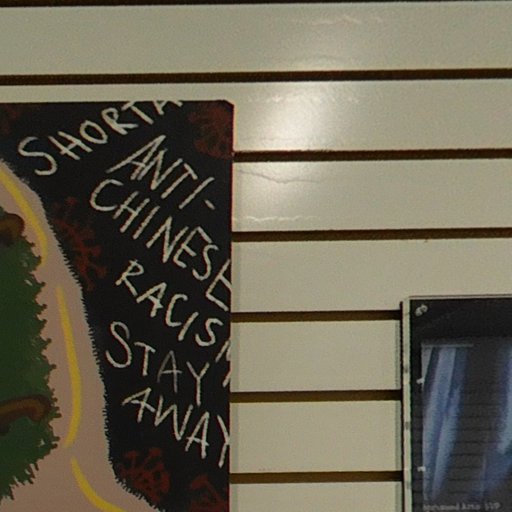 SHORTA
ANTI-
CHINESE
RACISM
STAY
AWAY